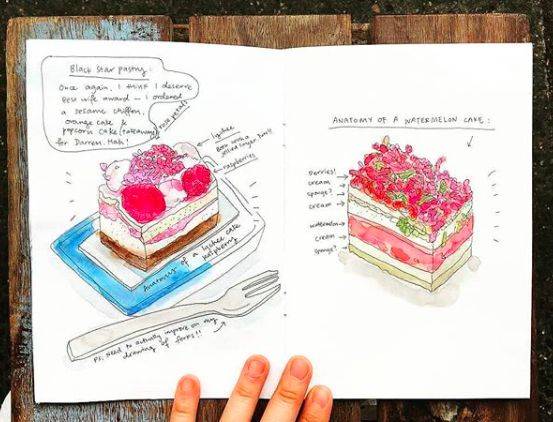 Black Star pastry:
Once again, I think I deserve
Best wife award – I ordered
a sesame chiffon,
orange cake &
popcorn cake (takeaway)
for Darren. Hah!
rose petals
lychee
raspberries
Anatomy of a lychee cake
raspberry
Ps. Need to actually improve on my
drawing of forks!!
ANATOMY OF A WATERMELON CAKE:
berries!
cream
sponge?
cream
watermelon
cream
sponge?